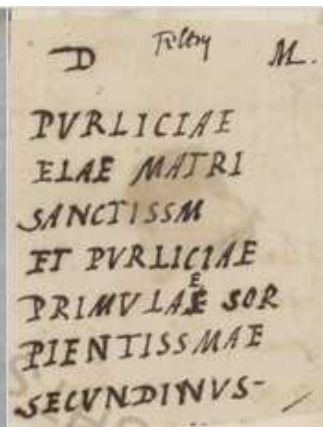 D Feltry M.
PVRLICIAE
ELAE MATRI
SANCTISSM
ET PVRLICIAE
PRIMVLAE SOR
PIENTISSMAE
SECVNDINVS-